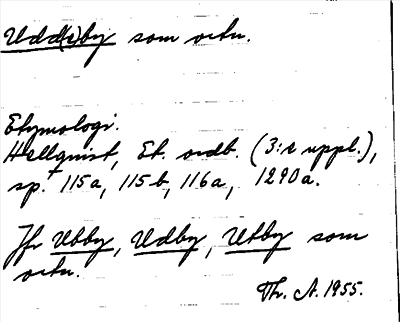 Udd(e)by som ortn.
Etymologi.
Hellquist, Et. ordb. (3:e uppl.),
sp. 115a, 115b, 116a, 1290a.
Jfr Ubby, Udby, Utby som
ortn.
Th. A. 1955.